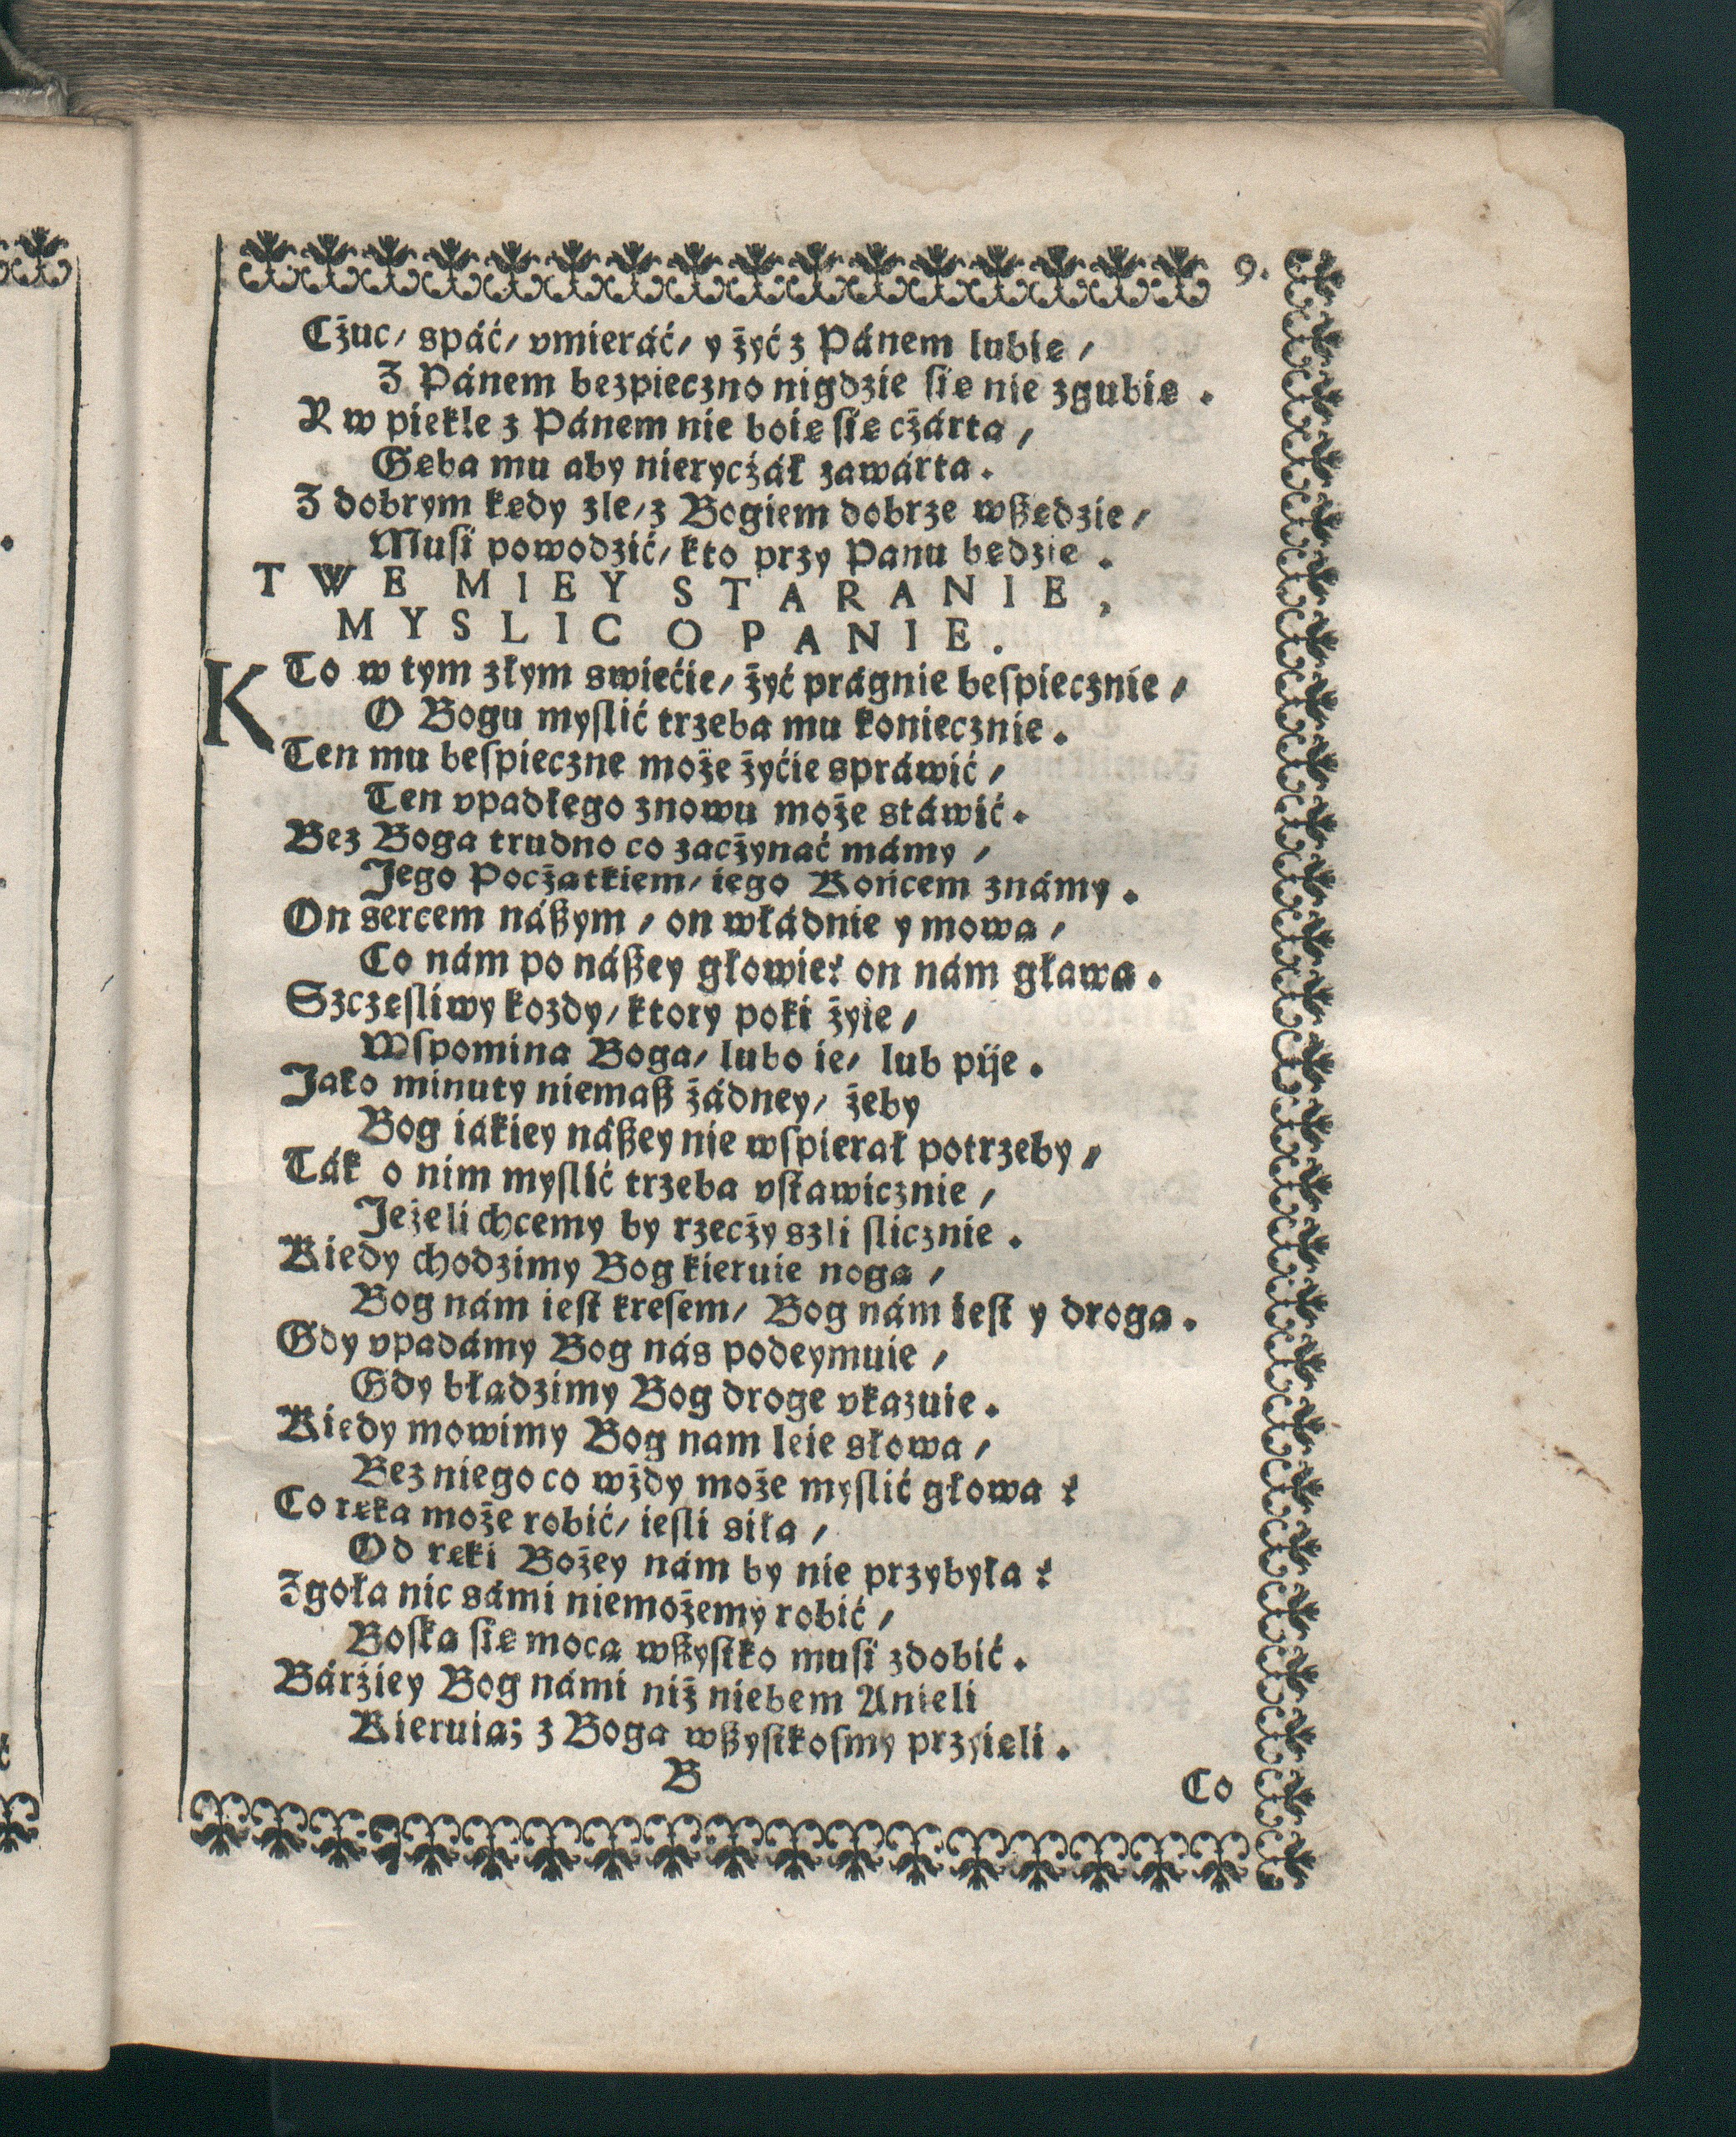 9.
Cżuc/ spáć/ vmieráć/ y żyć z Pánem lubię/
Z Pánem bezpieczno nigdzie się nie zgubię.
Y w piekle z Pánem nie boię się cżárta/
Gęba mu aby nierycżáł zawárta.
Z dobrym kędy zle/ z Bogiem dobrze wßędzie/
Musi powodzić/ kto przy Panu będzie.
TWE MIEY STARANIE,
MYSLIC O PANIE.
KTo w tym złym swiećie/ żyć prágnie bespiecznie/
O Bogu myslić trzeba mu koniecznie.
Ten mu bespieczne może żyćie spráwić/
Ten vpadłego znowu może stáwić.
Bez Boga trudno co zacżynać mámy/
Jego Początkiem/ iego Końcem známy.
On sercem náßym/ on władnie y mową/
Co nám po náßey głowie? on nám gławą.
Szczęsliwy kozdy/ ktory poki żyie/
Wspomina Boga/ lubo ie/ lub pije.
Jako minuty niemaß żádney/ żeby
Bog iákiey náßey nie wspierał potrzeby/
Ták o nim myslić trzeba vstawicznie/
Jeżeli chcemy by rzecży szli slicznie.
Kiedy chodzimy Bog kieruie nogą/
Bog nám iest kresem/ Bog nám iest y drogą.
Gdy vpadámy Bog nás podeymuie/
Gdy błądzimy Bog drogę vkazuie.
Kiedy mowimy Bog nam leie słowa/
Bez niego co wżdy może myslić głowa?
Co ręka może robić/ iesli siła/
Od ręki Bożey nám by nie przybyła?
Zgoła nic sámi niemożemy robić/
Boską się mocą wßystko musi zdobić.
Bárżiey Bog námi niż niebem Anieli
Kieruią; z Boga wßystkosmy przyięli.
B
Co